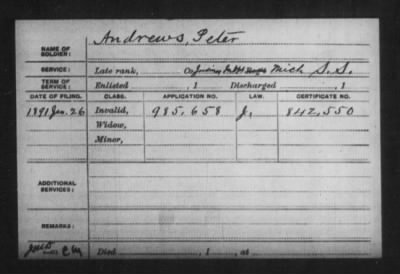 Andrews, Peter
NAME OF SOLDIER:
SERVICE: Late rank, Co Mich S.S.
TERM OF SERVICE: Enlisted , 1 Discharged , 1
DATE OF FILING. CLASS. APPLICATION NO. LAW. CERTIFICATE NO.
1891 Jan. 26 Invalid, 985.658 J. 842.550
Widow,
Minor,
ADDITIONAL SERVICES:
REMARKS:
Died , 1 , at